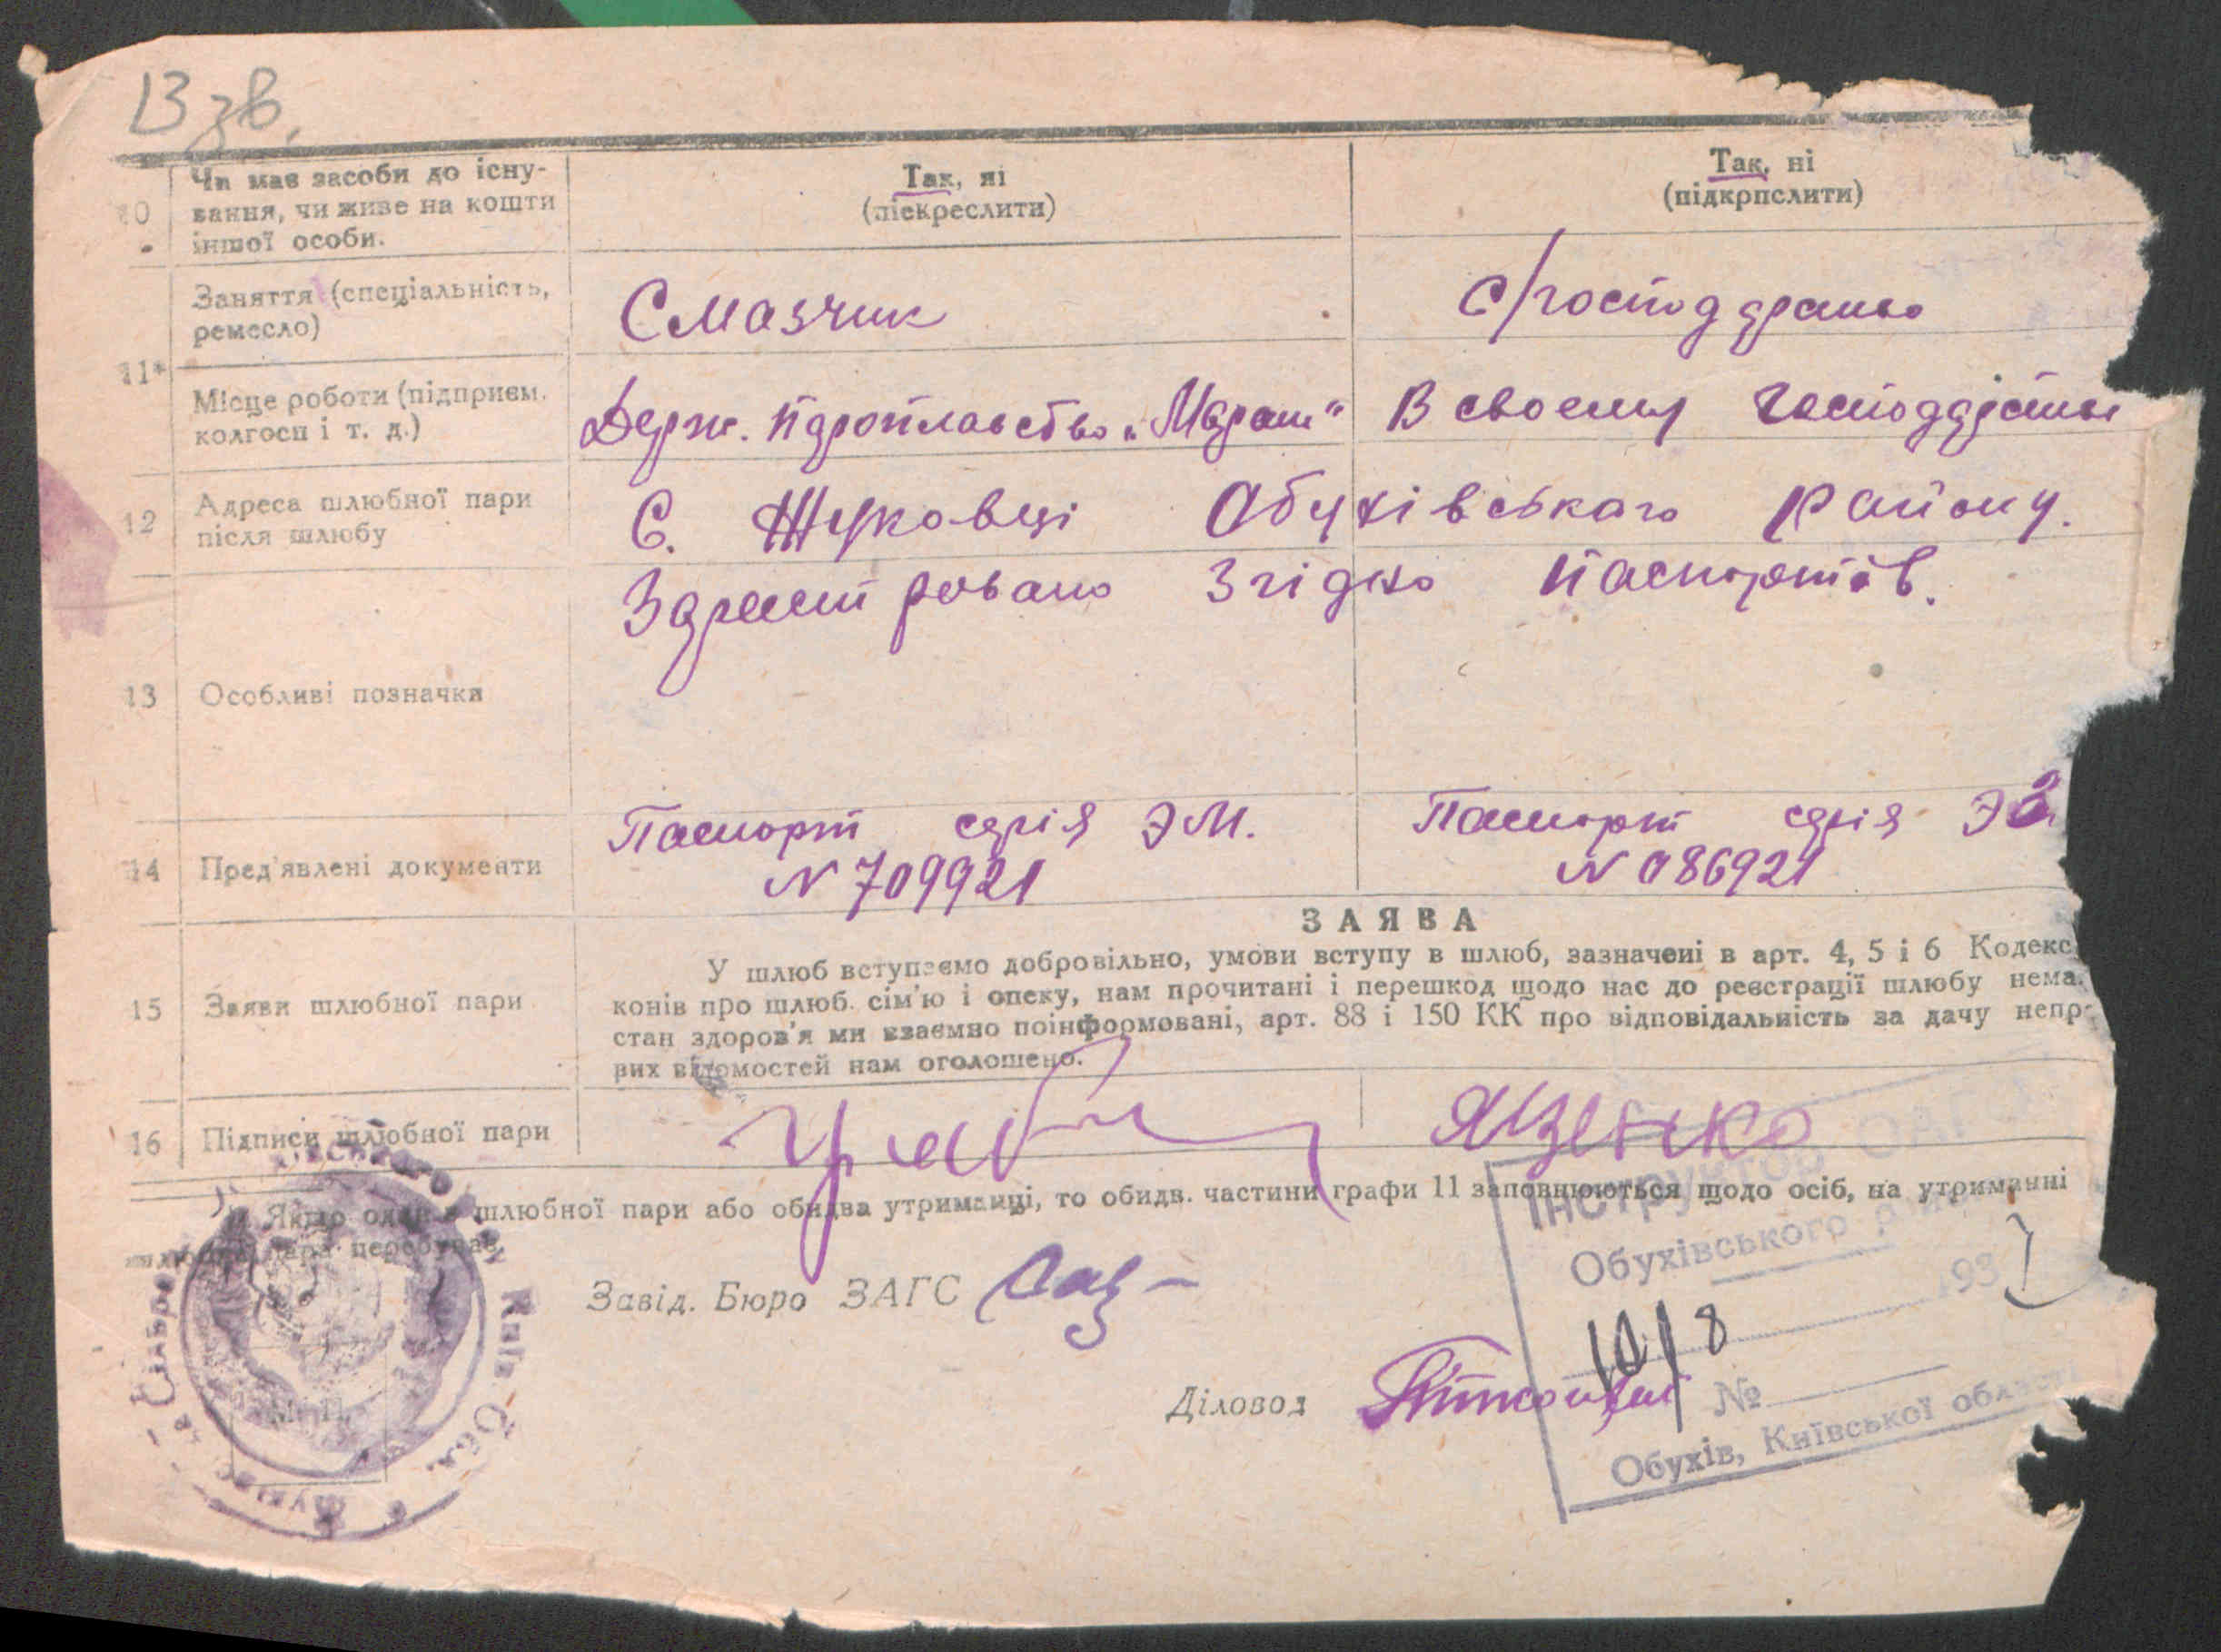 13 зв.
10 Чи має засоби до існу-
вання, чи живе на кошти
іншої особи.
Так, ні
(піскреслити)
Так, ні
(підкрпслити)
11*
Заняття (спеціальність,
ремесло)
Смазчик
Місце роботи (підприєм.
колгосп і т. д.)
Держ.
В своему
12 Адреса шлюбної пари
після шлюбу
С. Жуковці Обухівського району.
13 Особливі позначки
згідно паспортів.
14 Пред'явлені документи
Паспорт серія ЭМ.
N 709921
Паспорт серія
N 086921
15 Заяви шлюбної пари
ЗАЯВА
У шлюб вступаємо добровільно, умови вступу в шлюб, зазначені в арт. 4, 5 і 6 Кодекс
конів про шлюб. сім'ю і опеку, нам прочитані і перешкод щодо нас до реєстрації шлюбу нема.
стан здоров'я ми взаємно поінформовані, арт. 88 і 150 КК про відповідальність за дачу непр
вих відомостей нам оголошено.
16 Підписи шлюбної пари
Яценко
Якщо один з шлюбної пари або обидва утриманці, то обидв. частини графи 11 заповнюються щодо осіб, на утриманні
шлюбна пара перебуває
Завід. Бюро ЗАГС
Діловод
М. П.
Київ. Обл.
Інструктор ЗАГС
Обухівського
193
10/8
№
Обухів, Київської області